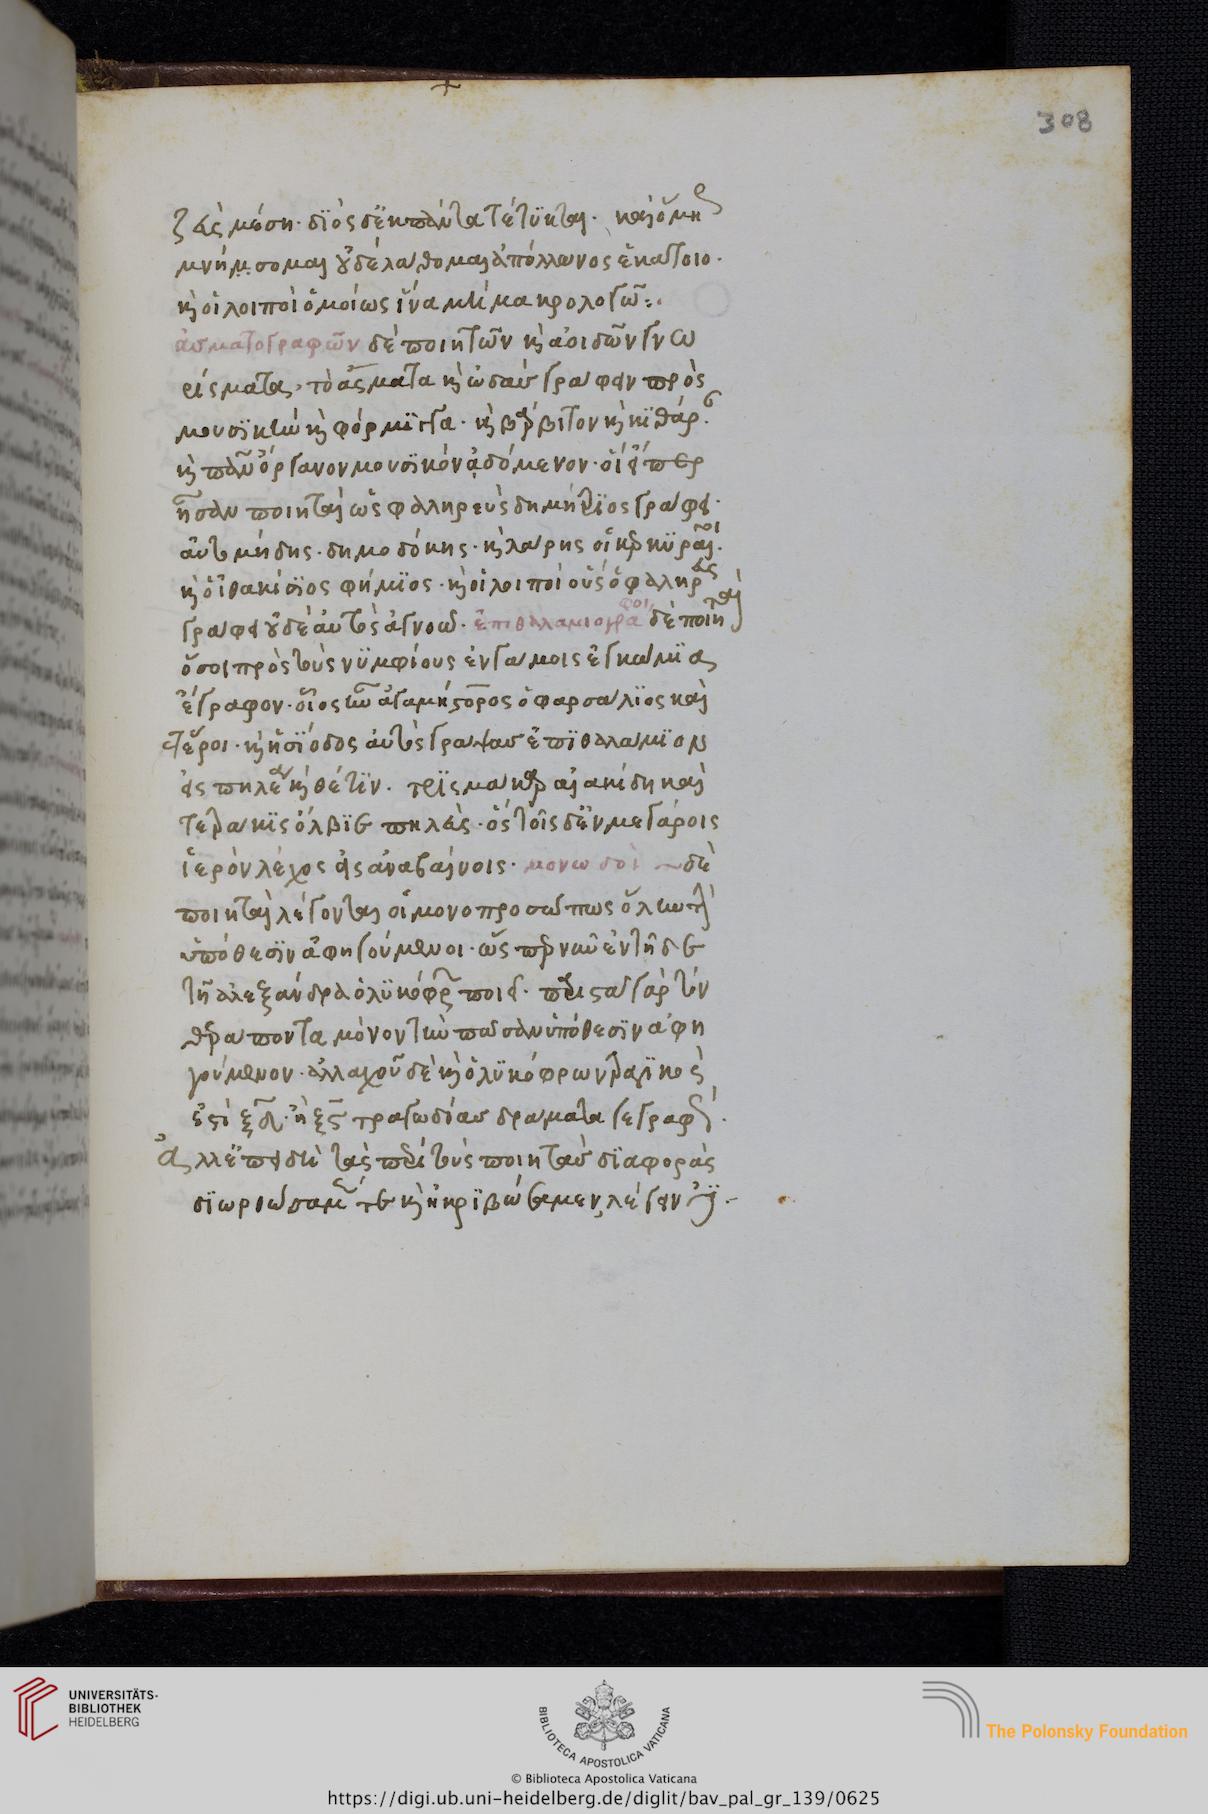 308
ζεὺς μέσση· διὸς δ' ἐκ πάντα τέτυκται· καὶ ὅμηρος
μνήσομαι οὐδὲ λάθωμαι ἀπόλλωνος ἑκάτοιο·
καὶ οἱ λοιποὶ ὁμοίως ἵνα μὴ μακρολογῶ:.
ἀσματογράφων δὲ ποιητῶν καὶ ἀοιδῶν γνω
ρίσματα, τὸ ἄσματα καὶ ὠδὰς γράφειν πρὸς
μουσικὴν καὶ φόρμιγγα· καὶ βάρβιτον καὶ κιθάραν·
καὶ πᾶν ὄργανον μουσικὸν ἀδόμενον· οἵ περ
ἦσαν ποιηταὶ ὡς φαληρεὺς δημήτριος γράφει·
αὐτομήδης· δημοδόκης· καὶ χάρης οἱ κερκυραῖοι·
καὶ ὁ ἰθακίσιος φήμιος· καὶ οἱ λοιποὶ οὓς ὁ φαληρεὺς
γράφει οὐδὲ αὐτὸς ἀγνοῶ· ἐπιθαλαμιογράφοι δὲ ποιηταὶ
ὅσοι πρὸς τοὺς νυμφίους ἐν γάμοις ἐγκώμια
ἔγραφον· οἷος ἦν ἀγαμήστορος ὁ φαρσάλιος καὶ
ἕτεροι· καὶ ἡσίοδος αὐτὸς γράψας ἐπιθαλάμιον
εἰς πηλέα καὶ θέτιν· τρὶς μάκαρ αἰακίδη καὶ
τετράκις ὄλβιε πηλεῦ· ὃς τοῖσδ' ἐν μεγάροις
ἱερὸν λέχος εἰσαναβαίνοις· μονωδοὶ δὲ
ποιηταὶ λέγονται οἱ μονοπροσώπως ὅλην τὴν
ὑπόθεσιν ἀφηγούμενοι· ὥσπερ νῦν ἐν τῆδε
τῆ ἀλεξάνδρα ὁ λυκόφρων ποιεῖ· παρεισάγει γὰρ τὸν
θεράποντα μόνον τὴν πᾶσαν ὑπόθεσιν ἀφη
γούμενον· ἀλλαχοῦ δὲ καὶ ὁ λυκόφρων τραγικός
ἐστὶ ξδ ἢ ξς τραγωδίας δράματα γεγραφώς·
ἀλλ' ἐπειδὴ τὰς περὶ τοὺς ποιητὰς διαφορὰς
διωρίσαμεν τε καὶ ἠκριβώσαμεν, λέγειν
UNIVERSITÄTS-
BIBLIOTHEK
HEIDELBERG
BIBLIOTECA APOSTOLICA VATICANA
The Polonsky Foundation
© Biblioteca Apostolica Vaticana
https://digi.ub.uni-heidelberg.de/diglit/bav_pal_gr_139/0625